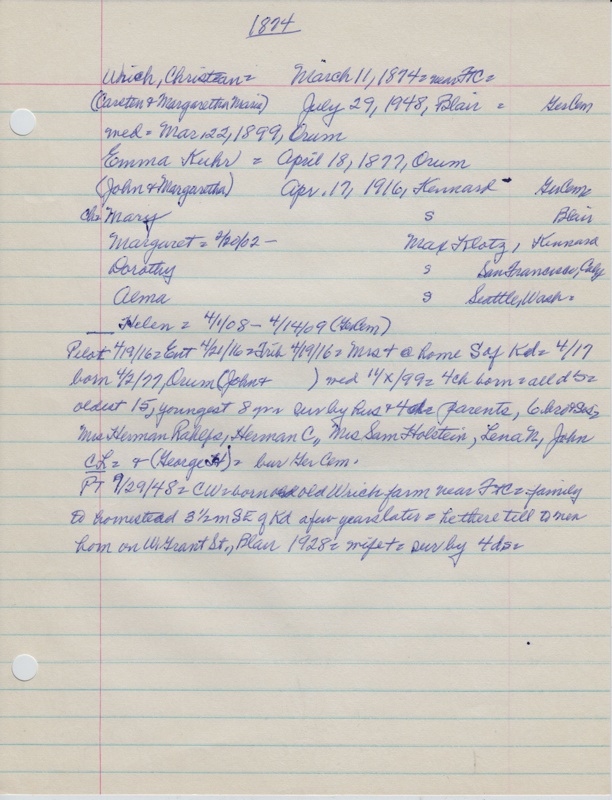 1874
Wrich, Christian = March 11, 1874 = near FtC =
(Carsten & Margaretha Maria) July 29, 1948, Blair = GerCem
wed = Mar 22, 1899, Orum
Emma Kuhr = April 18, 1877, Orum
(John & Margaretha) Apr. 17, 1916, Kennard - GerCem
Ch = Mary S Blair
Margaret = 2/20/02 - Max Klotz, Kennard
Dorothy S San Francisco, Caly
Alma S Seattle, Wash =
Helen = 4/1/08 - 4/14/09 (GerCem)
Pilot 4/19/16 = Ent 4/21/16 = Trib 4/19/16 = Mrs + @ home S of Kd = 4/17
born 4/2/77, Orum (John & ) wed 1X/99 = 4 ch born = all ds =
oldest 15, youngest 8 yr sur by hus & 4 ds = parents, 6 bro & sis =
Mrs Herman Rahlfs, Herman C., Mrs Sam Holstein, Lena N, John
CL = & (George H) = bur Ger Cem.
PT 9/29/48 = CW = born old Wrich farm near FtC = family
to homestead 3½ m SE of Kd a few years later = he there till to new
hom on W. Grant St., Blair 1928 = wife + = sur by 4 ds =